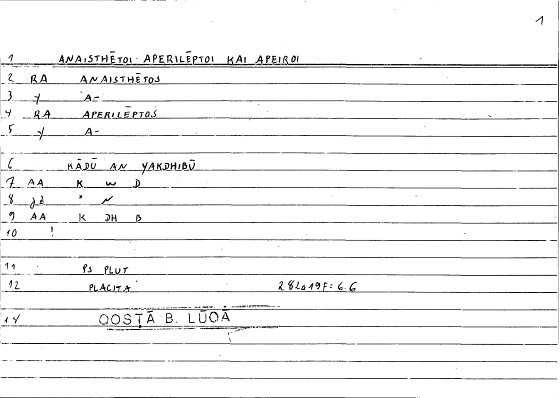 1
1 ANAISTHĒTOI APERILĒPTOI KAI APEIROI
2 RA ANAISTHĒTOS
3 y A-
4 RA APERILĒPTOS
5 y A-
6 KĀDŪ AN YAKDHIBŪ
7 AA K W D
8 N
9 AA K DH B
10 !
11 PS PLUT
12 PLACITA 282a19F: 6.6
14 QOSṬĀ B. LŪQĀ